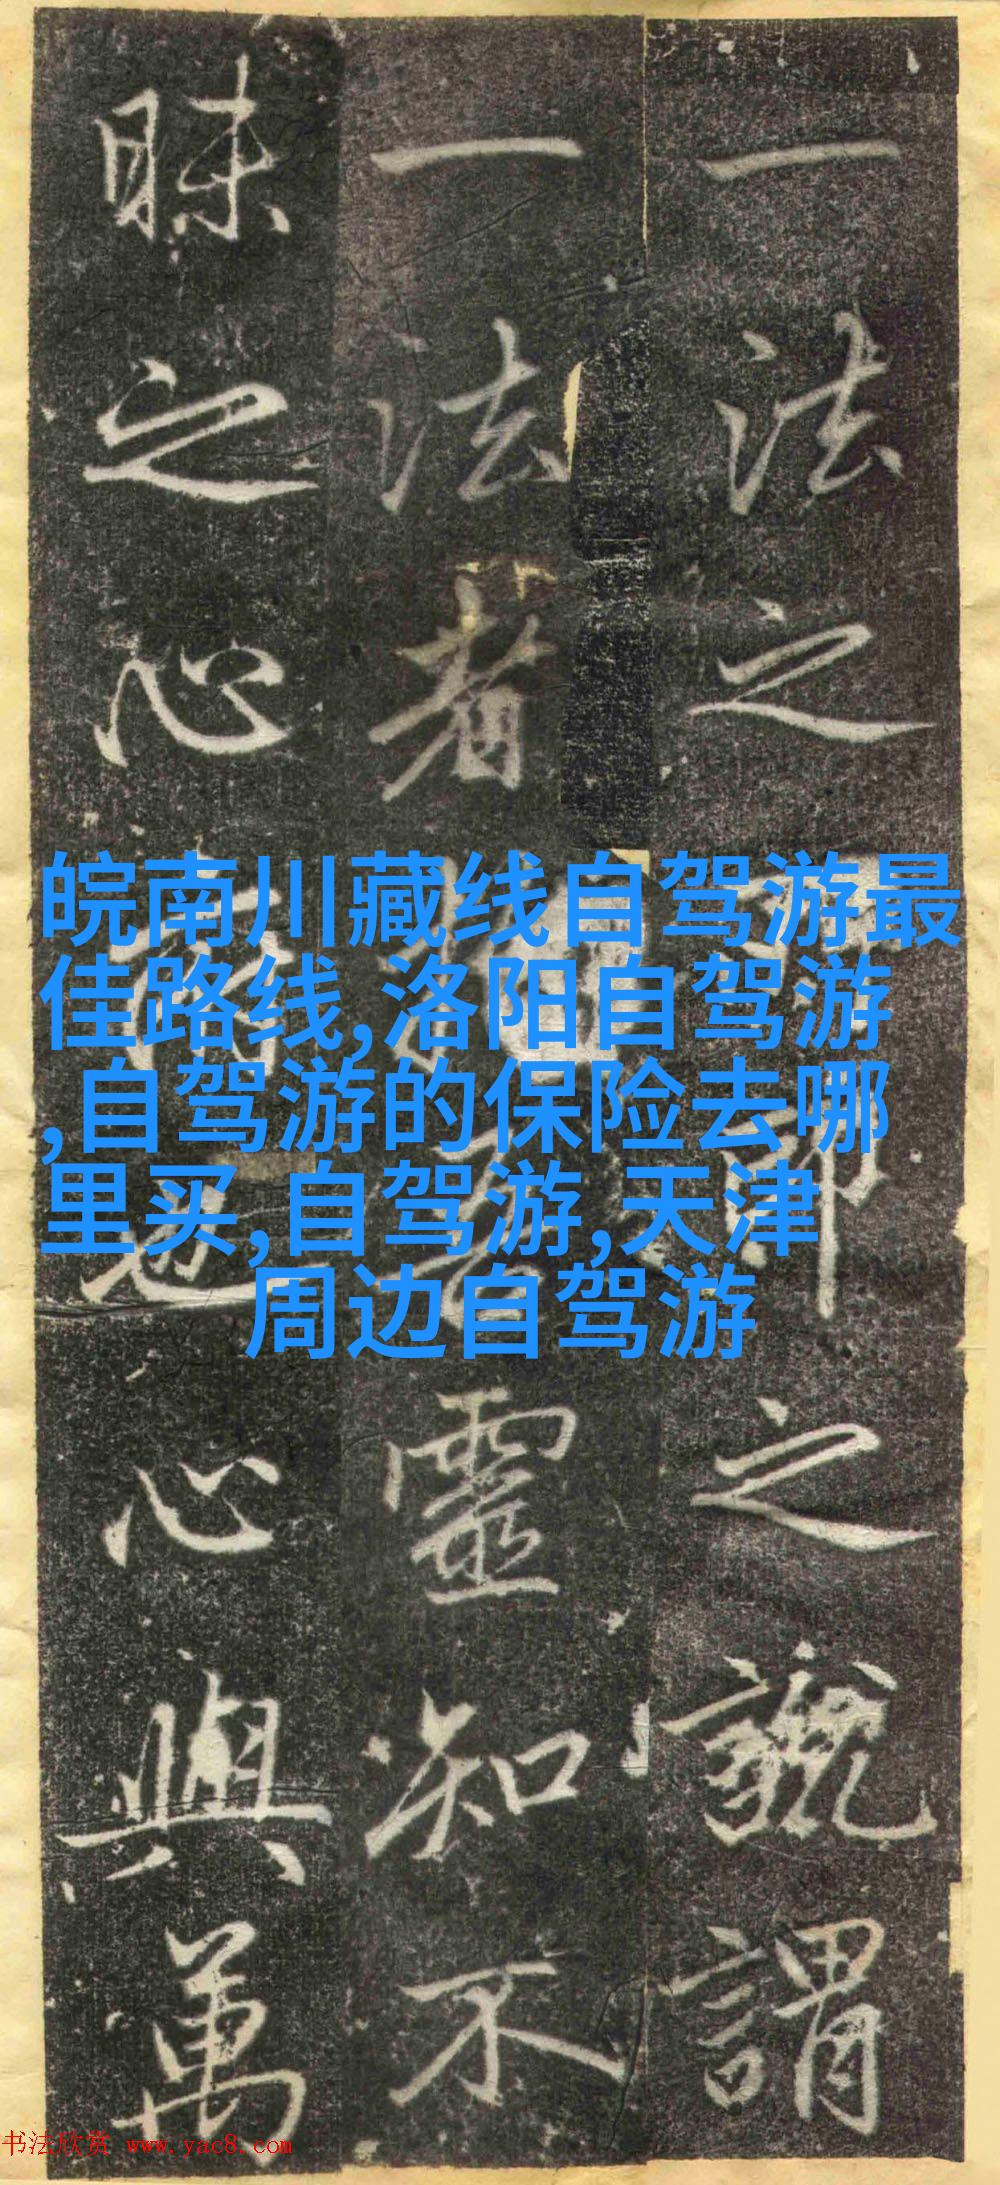 一法之即之說謂
一法者靈知不
昧之心也心與萬
皖南川藏线自驾游最
佳路线,洛阳自驾游
,自驾游的保险去哪
里买,自驾游,天津
周边自驾游
书法欣赏 www.yac8.com